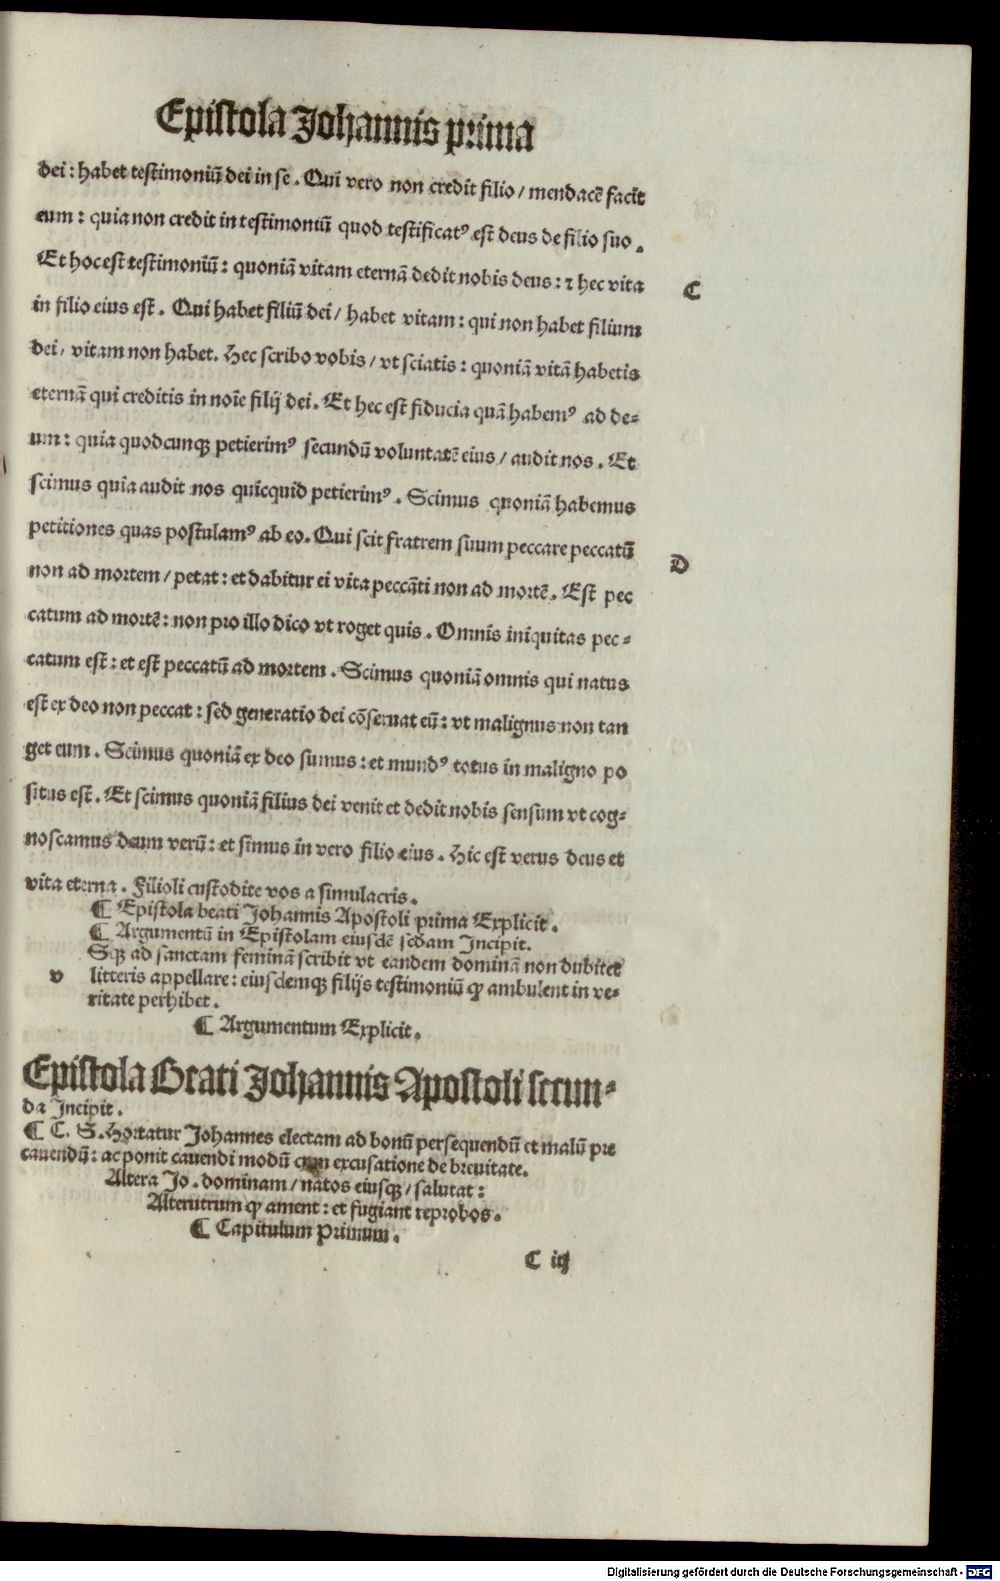 Epistola Johannis prima
dei : habet testimoniū dei in se . Qui vero non credit filio / mendacē facit
eum : quia non credit in testimoniū quod testificatꝰ est deus de filio suo .
Et hoc est testimoniū : quoniā vitam eternā dedit nobis deus : ⁊ hec vita
C
in filio eius est . Qui habet filiū dei / habet vitam : qui non habet filium
dei / vitam non habet . Hec scribo vobis / vt sciatis : quoniā vitā habetis
eternā qui creditis in noīe filij dei . Et hec est fiducia quā habemꝰ ad de=
um : quia quodcunqꝫ petierimꝰ secundū voluntatē eius / audit nos . Et
scimus quia audit nos quicquid petierimꝰ . Scimus quoniā habemus
petitiones quas postulamꝰ ab eo . Qui scit fratrem suum peccare peccatū
D
non ad mortem / petat : et dabitur ei vita peccāti non ad mortē . Est pec
catum ad mortē : non pro illo dico vt roget quis . Omnis iniquitas pec=
catum est : et est peccatū ad mortem . Scimus quoniā omnis qui natus
est ex deo non peccat : sed generatio dei cōseruat eū : vt malignus non tan
get eum . Scimus quoniā ex deo sumus : et mundꝰ totus in maligno po
situs est . Et scimus quoniā filius dei venit et dedit nobis sensum vt cog=
noscamus deum verū : et simus in vero filio eius . Hic est verus deus et
vita eterna . Filioli custodite vos a simulacris .
¶ Epistola beati Johannis Apostoli prima Explicit .
¶ Argumentū in Epistolam eiusdē scdam Incipit .
Sqꝫ ad sanctam feminā scribit vt eandem dominā non dubitet
v litteris appellare : eiusdemqꝫ filijs testimoniū ꝙ ambulent in ve=
ritate perhibet .
¶ Argumentum Explicit .
Epistola Beati Johannis Apostoli secun=
da Incipit .
¶ C . S . Hortatur Johannes electam ad bonū persequendū et malū pre
cauendū : ac ponit cauendi modū cum excusatione de breuitate .
Altera Jo . dominam / natos eiusqꝫ / salutat :
Alterutrum ꝙ ament : et fugiant reprobos .
¶ Capitulum Primum .
C iij
Digitalisierung gefördert durch die Deutsche Forschungsgemeinschaft - DFG